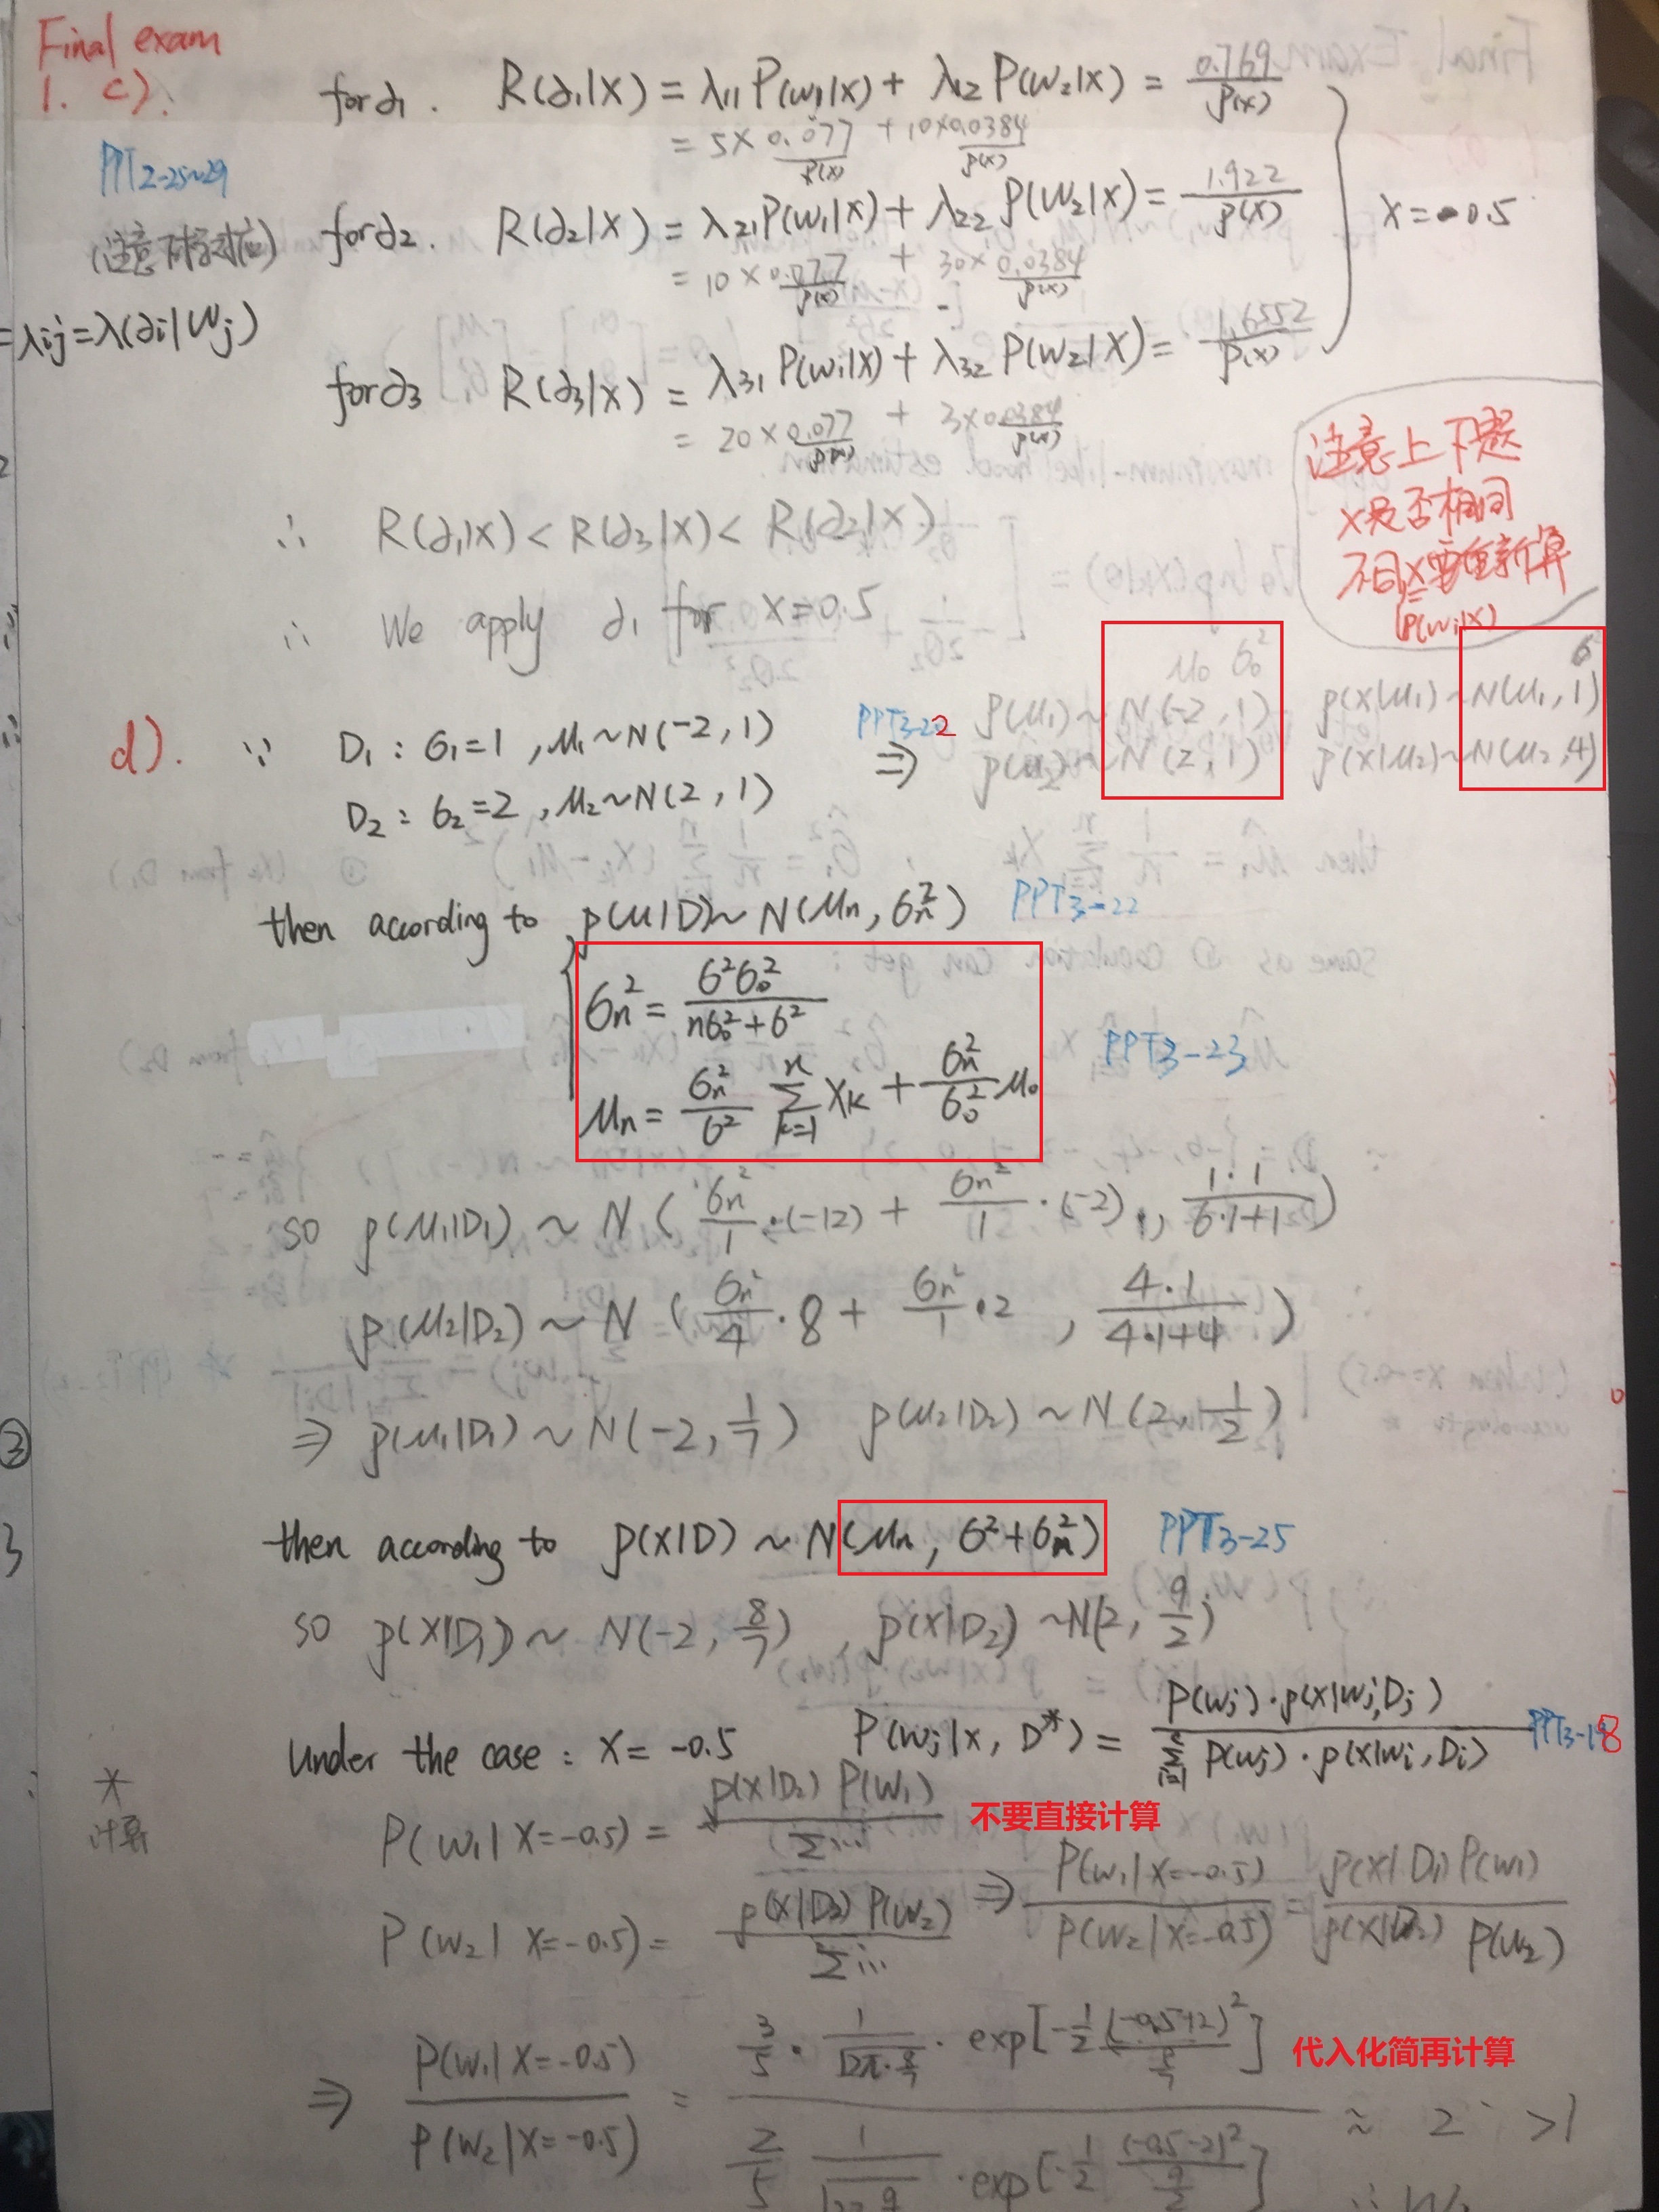 Final exam
1. c).
for ∂1. R(∂1|X) = λ11 P(w1|X) + λ12 P(w2|X) = 0.769/P(x)
= 5×0.077/P(x) + 10×0.0384/P(x)
PPT2-25~29
(注意下标对应)
for∂2. R(∂2|X) = λ21P(w1|X) + λ22 P(w2|X) = 1.922/P(X)
X=-0.5
= 10×0.077/P(x) + 30×0.0384/P(x)
=λij=λ(∂i|Wj)
for∂3 R(∂3|X) = λ31 P(w1|X) + λ32 P(w2|X) = 1.6552/P(x)
= 20×0.077/P(x) + 3×0.0384/P(x)
注意上下题
X是否相同
不同X要重新算
P(wi|X)
∴ R(∂1|X) < R(∂3|X) < R(∂2|X)
∴ We apply ∂1 for X=0.5
μ0 σ0² σ²
d). ∵ D1 : σ1=1 , μ1~N(-2,1) PPT3-22 ⇒ P(μ1)~N(-2,1) p(X|μ1)~N(μ1,1)
D2 : σ2=2 , μ2~N(2,1) p(μ2)~N(2,1) p(X|μ2)~N(μ2,4)
then according to p(μ|D)~N(μn, σn²) PPT3-22
σn² = σ²σ0²/(nσ0²+σ²)
PPT3-23
μn = σn²/σ² ∑k=1n Xk + σn²/σ0² μ0
so p(μ1|D1) ~ N( σn²/1 ·(-12) + σn²/1 ·(-2), 1·1/(6·1+1) )
p(μ2|D2) ~ N ( σn²/4 ·8 + σn²/1 ·2 , 4·1/(4·1+4) )
⇒ p(μ1|D1) ~ N(-2, 1/7) p(μ2|D2) ~ N(2, 1/2)
then according to p(X|D) ~ N(μn, σ²+σn²) PPT3-25
so p(X|D1) ~ N(-2, 8/7) , p(X|D2) ~N(2, 9/2)
under the case : X= -0.5 P(wj|x, D*) = P(wj)·p(x|wj,Dj) / ∑i=1 P(wj)·p(x|wi,Di) PPT3-18
*
计算
P(w1|X=-0.5) = p(X|D1) P(w1)/∑... 不要直接计算
P(w2|X=-0.5) = p(X|D2) P(w2)/∑... ⇒ P(w1|X=-0.5)/P(w2|X=-0.5) = p(X|D1)P(w1)/p(X|D2) P(w2)
⇒ P(w1|X=-0.5)/P(w2|X=-0.5) = 3/5 · 1/√2π·8/7 · exp[-1/2 (-0.5+2)²/(8/7)] / 2/5 1/√2π 9/2 ·exp[-1/2 (-0.5-2)²/(9/2)] ≈ 2 >1
代入化简再计算